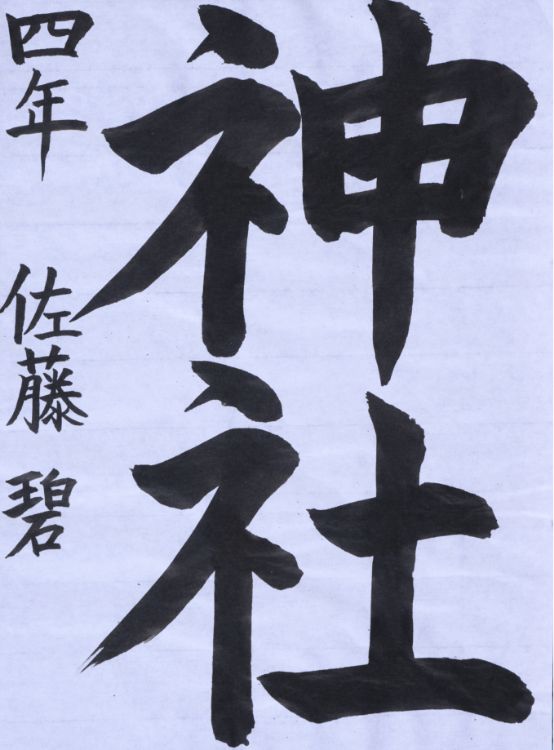 神社
四年 佐藤 碧